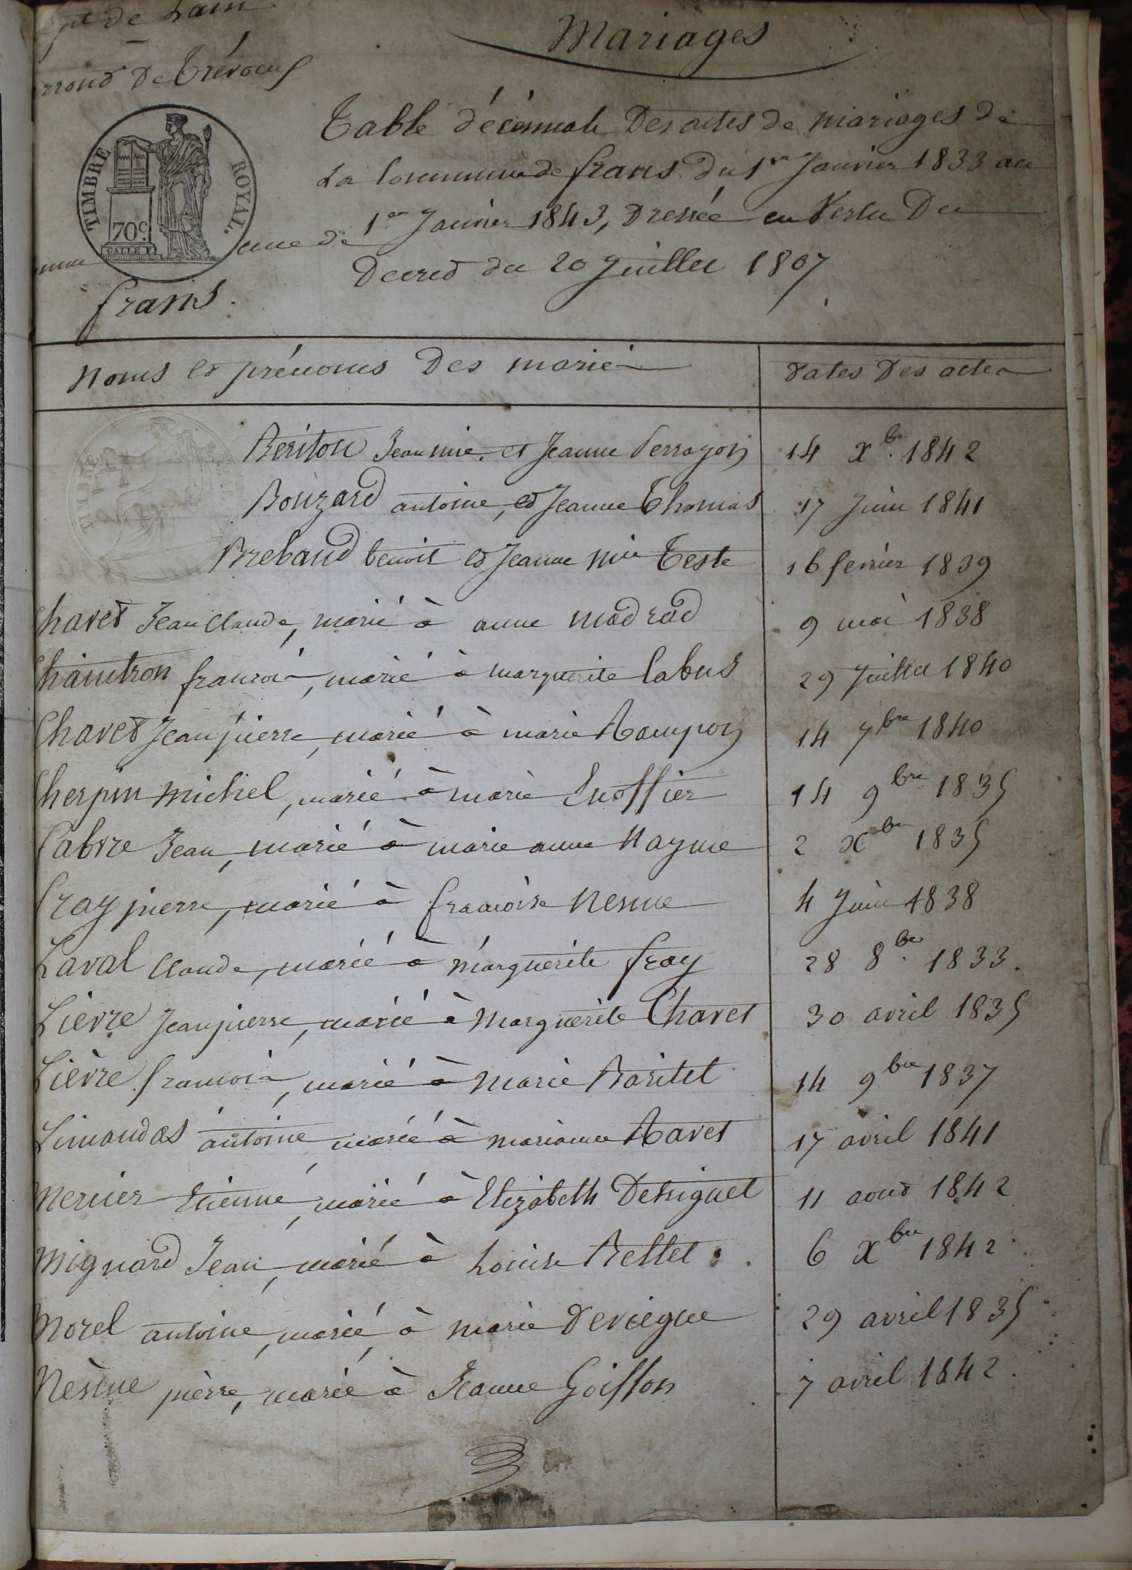 pt de Lain
Mariages
rrond De Trévoux
Table décénnale Des actes de mariages de
La Commune de frans du 1er Janvier 1833 au
1er Janvier 1843, Dressée en Vertu Du
Decret du 20 Juillet 1807
TIMBRE ROYAL.
70c.
mune de
frans.
Noms et prénoms Des mariés
Dates Des actes
Beriton Jean mie. et Jeanne Perrayon 14 Xb. 1842
Bouzard antoine, et Jeanne Thomas 17 Juin 1841
Brebaud benoit et Jeanne mie Teste 16 fevrier 1839
Chavet Jean Claude, marié à anne madrad 9 mai 1838
Chaintron francois, marié à marguerite Cabus 29 Juillet 1840
Chavet Jean pierre, marié à marie Rampon 14 7bre 1840
Cherpin michel, marié à marie Enoffier 14 9bre 1835
Cabire Jean, marié à marie anne Nayme 2 Xbre 1835
fray pierre, marié à francoise Nesme 4 Juin 1838
Laval Claude, marié à Marguerite fray 28 8bre. 1833.
Lievre Jean pierre, marié à Marguerite Chavet 30 avril 1835
Lièvre francois, marié à Marie Baritel 14 9bre 1837
Limandas antoine, marié à marianne Ravet 17 avril 1841
Mercier Etienne, marié à Elizabeth Desiguel 11 aout 1842
Mignard Jean, marié à Louise Bettet. 6 Xbre 1842
Morel antoine, marié à marie Deviegue 29 avril 1835
Nèsme pièrre, marié à Jeanne Goiffon 7 avril 1842.